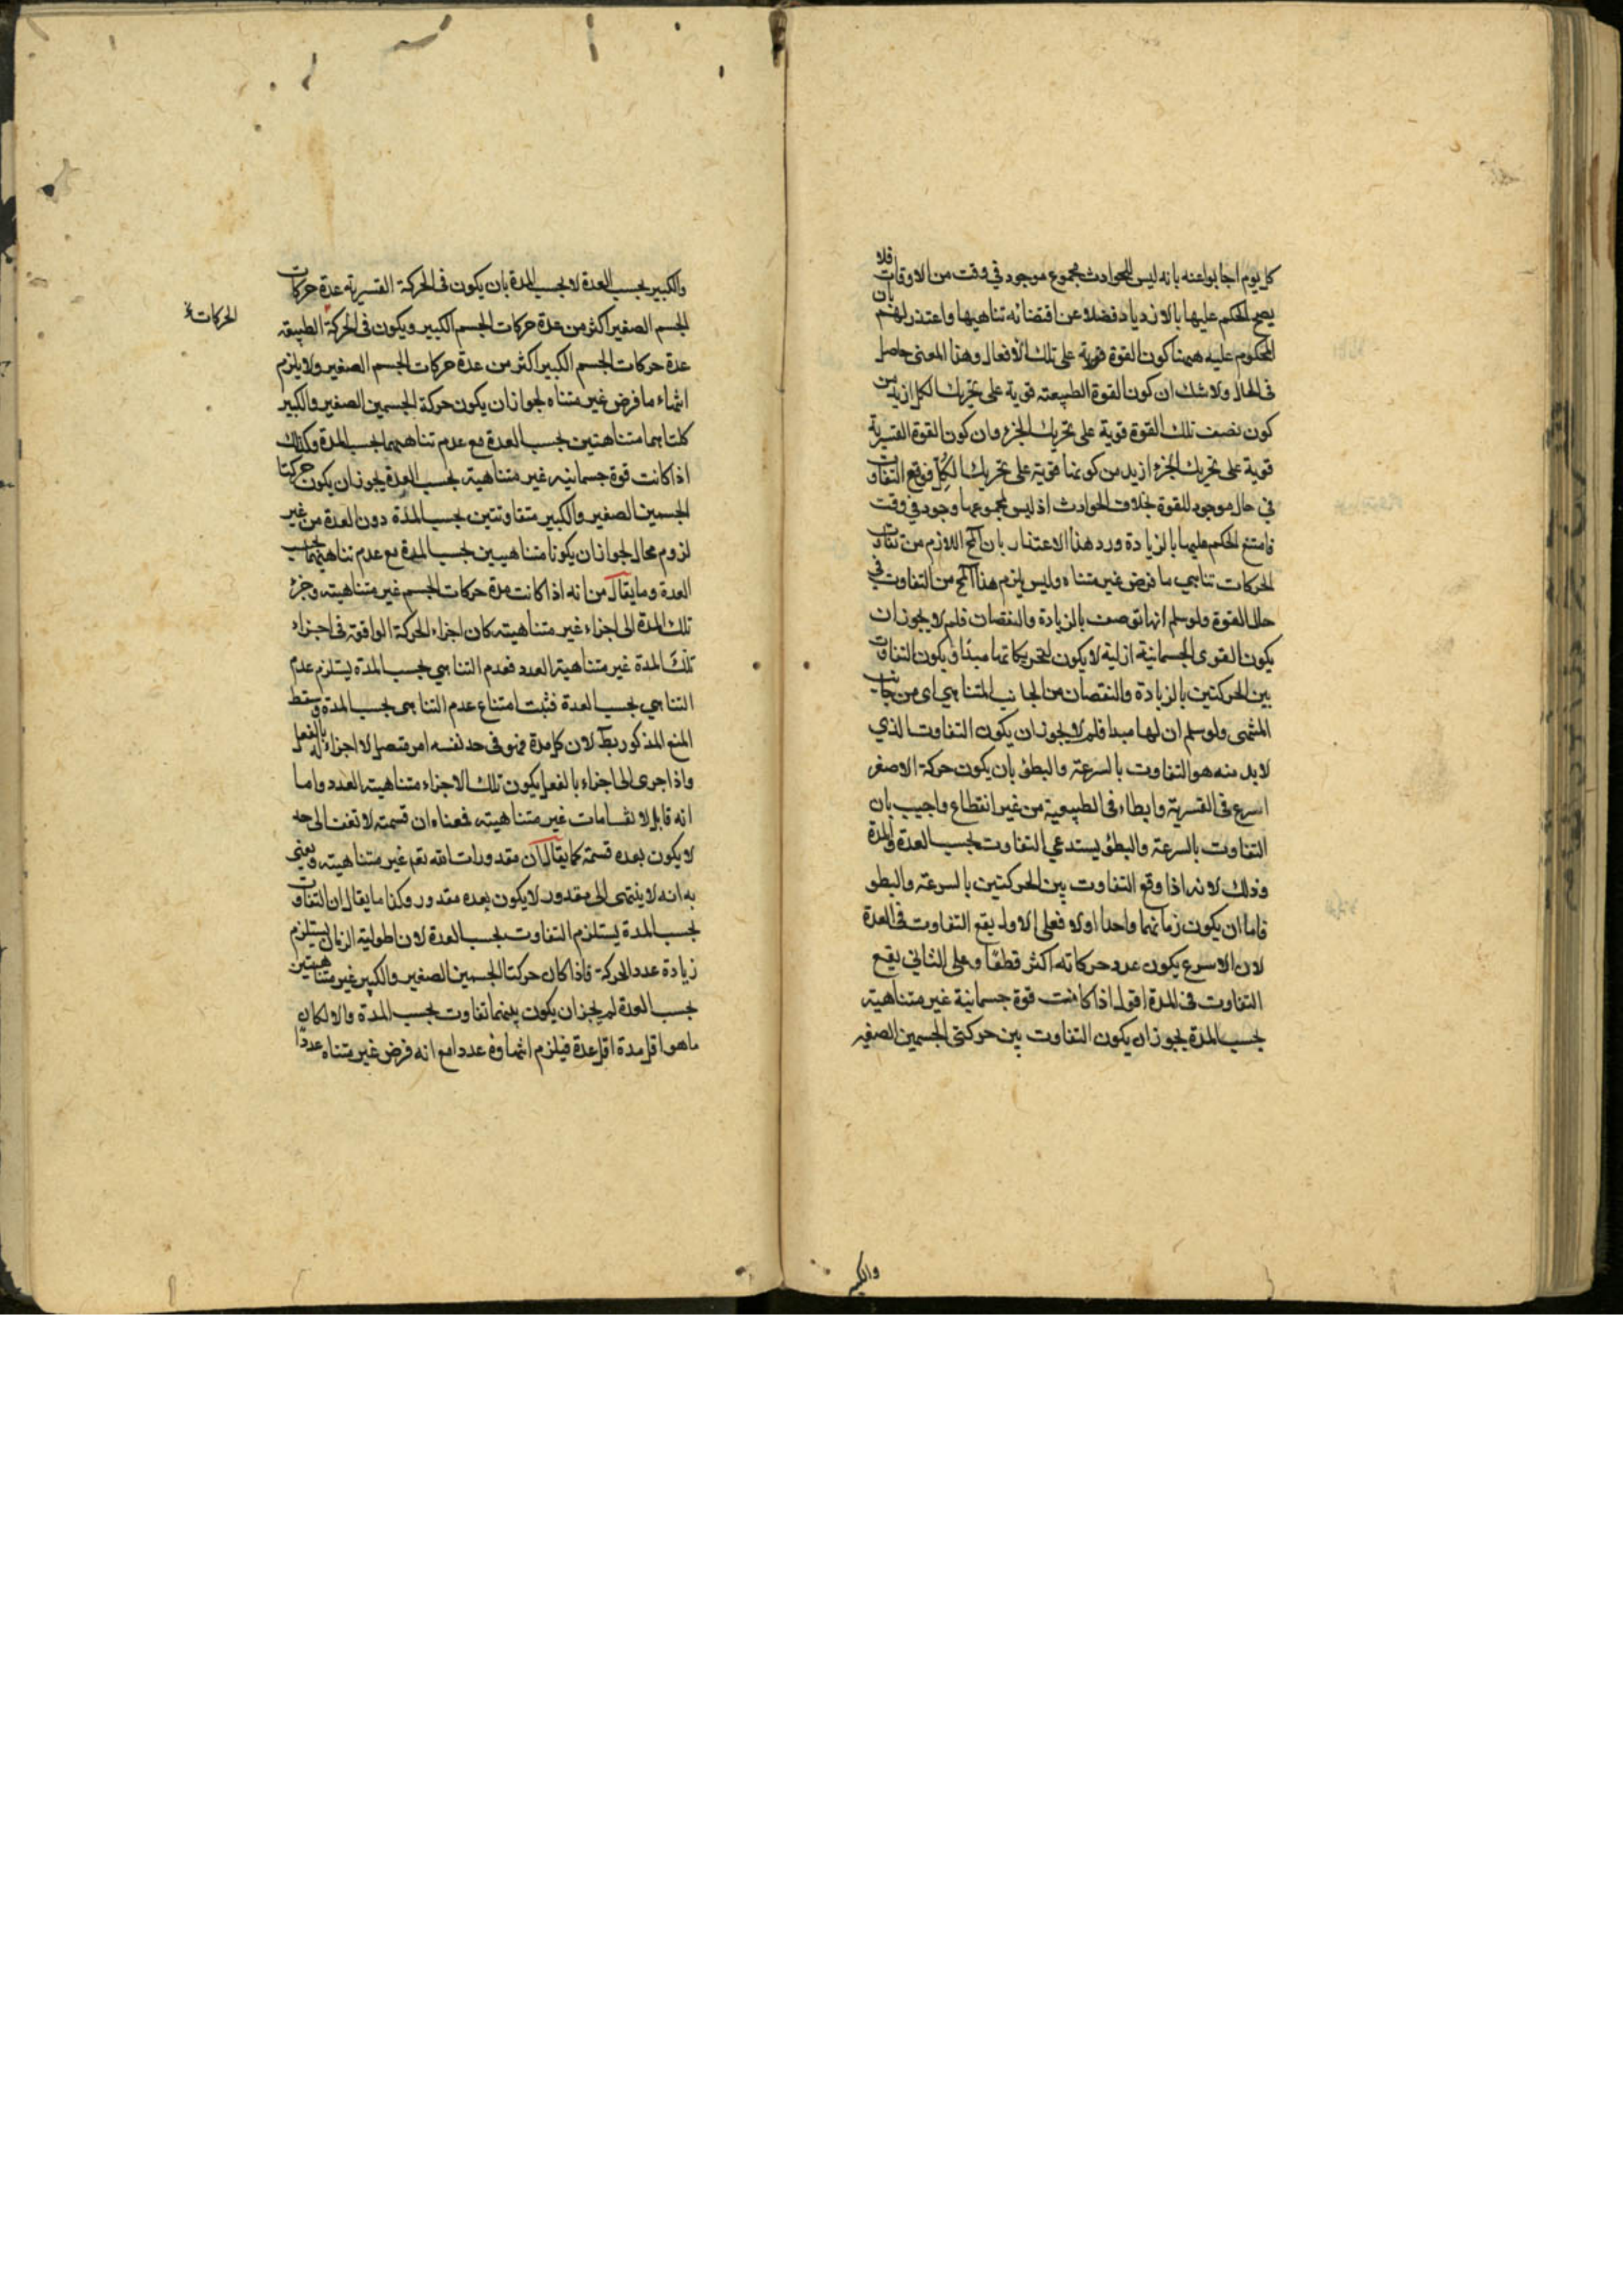 كل يوم اجابوا عنه بانه ليس للحوادث مجموع موجود في وقت من الاوقات فلا
يصح الحكم عليها بالازدياد فضلا عن اقتضائه تناهيها واعتذر لهم بان
المحكوم عليه ههنا كون القوة قوية على تلك الافعال وهذا المعنى حاصل
فى الحال ولا شك ان كون القوة الطبيعته قوية على تحريك الكل ازيد من
كون نصف تلك القوة قوية على تحريك الجزء وان كون القوة القسرية
قوية على تحريك الجزء ازيد من كونها قوية على تحريك الكل فوقع التفاوت
في حال موجود للقوة بخلاف الحوادث اذ ليس لمجموعها وجود في وقت
فامتنع الحكم عليها بالزيادة ورد هذا الاعتذار بان المح اللازم من تفاوت
الحركات تناهي ما فرض غير متناه وليس يلزم هذا المح من التفاوت في
حال القوة ولو سلم انها توصف بالزيادة والنقصان فلم لا يجوز ان
يكون القوى الجسمانية ازلية لا يكون لتحريكاتها مبدأ ويكون التفاوت
بين الحركتين بالزيادة والنقصان من الجانب المتناهي اى من جانب
المنتهى ولو سلم ان لها مبدا فلم لا يجوز ان يكون التفاوت الذي
لابد منه هو التفاوت بالسرعة والبطئ بان يكون حركة الاصغر
اسرع فى القسرية وابطاء فى الطبيعية من غير انقطاع واجيب بان
التفاوت بالسرعة والبطئ يستدعي التفاوت بحسب العدة والمدة
وذلك لانه اذا وقع التفاوت بين الحركتين بالسرعة والبطو
فاما ان يكون زمانهما واحدا اولا فعلى الاول يقع التفاوت فى العدة
لان الاسرع يكون عدد حركاته اكثر قطعا وعلى الثاني يقع
التفاوت فى المدة اقول اذا كانت قوة جسمانية غير متناهية
بحسب المدة يجوز ان يكون التفاوت بين حركتى الجسمين الصغير
والكبير
والكبير بحسب العدة لا بحسب المدة بان يكون فى الحركة القسرية عدة حركات
الجسم الصغير اكثر من عدة حركات الجسم الكبير ويكون فى الحركة الطبيعه
الحركات
عدة حركات الجسم الكبير اكثر من عدة حركات الجسم الصغير ولا يلزم
انتهاء ما فرض غير متناه لجواز ان يكون حركة الجسمين الصغير والكبير
كلتاهما متناهيتين بحسب العدة مع عدم تناهيهما بحسب المدة وكذلك
اذا كانت قوة جسمانيه غير متناهية بحسب العدة يجوز ان يكون حركتا
الجسمين الصغير والكبير متفاوتتين بحسب المدة دون العدة من غير
لزوم محال لجواز ان يكونا متناهيين بحسب المدة مع عدم تناهيهما بحسب
العدة وما يقال من انه اذا كانت مدة حركات الجسم غير متناهيته وجزئ
تلك المدة الى اجزاء غير متناهيته كان اجزاء الحركة الواقعة فى اجزاء
تلك المدة غير متناهية العدد فعدم التناهي بحسب المدة يستلزم عدم
التناهي بحسب العدة فثبت امتناع عدم التناهى بحسب المدة وسقط
المنع المذكور بط لان كل مدة فهو فى حد نفسه امر متصل لا اجزاء له بالفعل
واذا جزى الى اجزاء بالفعل يكون تلك الاجزاء متناهية العدد واما
انه قابل لانقسامات غير متناهيته فمعناه ان قسمته لا تقف الى حد
لا يكون بعده قسمة كما يقال ان مقدورات الله تعم غير متناهيته ويعني
به انه لا ينتهى الى مقدور لا يكون بعده مقدور وكذا ما يقال ان التفاوت
بحسب المدة يستلزم التفاوت بحسب العدة لان اطولية الزمان يستلزم
زيادة عدد الحركة فاذا كان حركتا الجسمين الصغير والكبير غير متناهيتين
بحسب العدة لم يجز ان يكون بينهما تفاوت بحسب المدة والا لكان
ما هو اقل مدة اقل عدة فيلزم انتهاوه عددا مع انه فرض غير متناه عددا